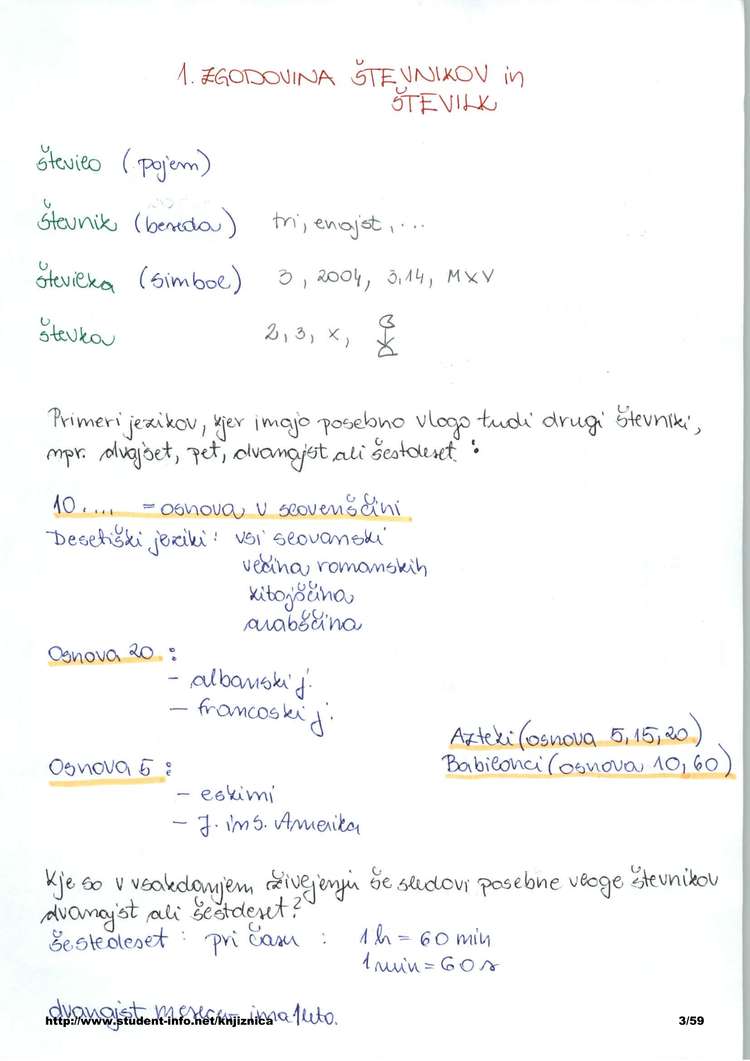 1. ZGODOVINA ŠTEVNIKOV in
ŠTEVILK
število (pojem)
števnik (beseda) tri, enajst, ...
številka (simbol) 3, 2004, 3,14, MXV
števka 2, 3, x,
Primeri jezikov, kjer imajo posebno vlogo tudi drugi števniki,
npr. dvajset, pet, dvanajst ali šestdeset :
10 .... = osnova v slovenščini
Desetiški jeziki: vsi slovanski
večina romanskih
kitajščina
arabščina
Osnova 20 :
- albanski j.
- francoski j.
Azteki (osnova 5,15,20)
Babilonci (osnova 10,60)
Osnova 5 :
- eskimi
- J. in S. Amerika
Kje so v vsakdanjem življenju še sledovi posebne vloge števnikov
dvanajst ali šestdeset?
šestdeset : pri času : 1 h = 60 min
1 min = 60 s
dvanajst mesecev ima 1 leto.
http://www.student-info.net/knjiznica
3/59